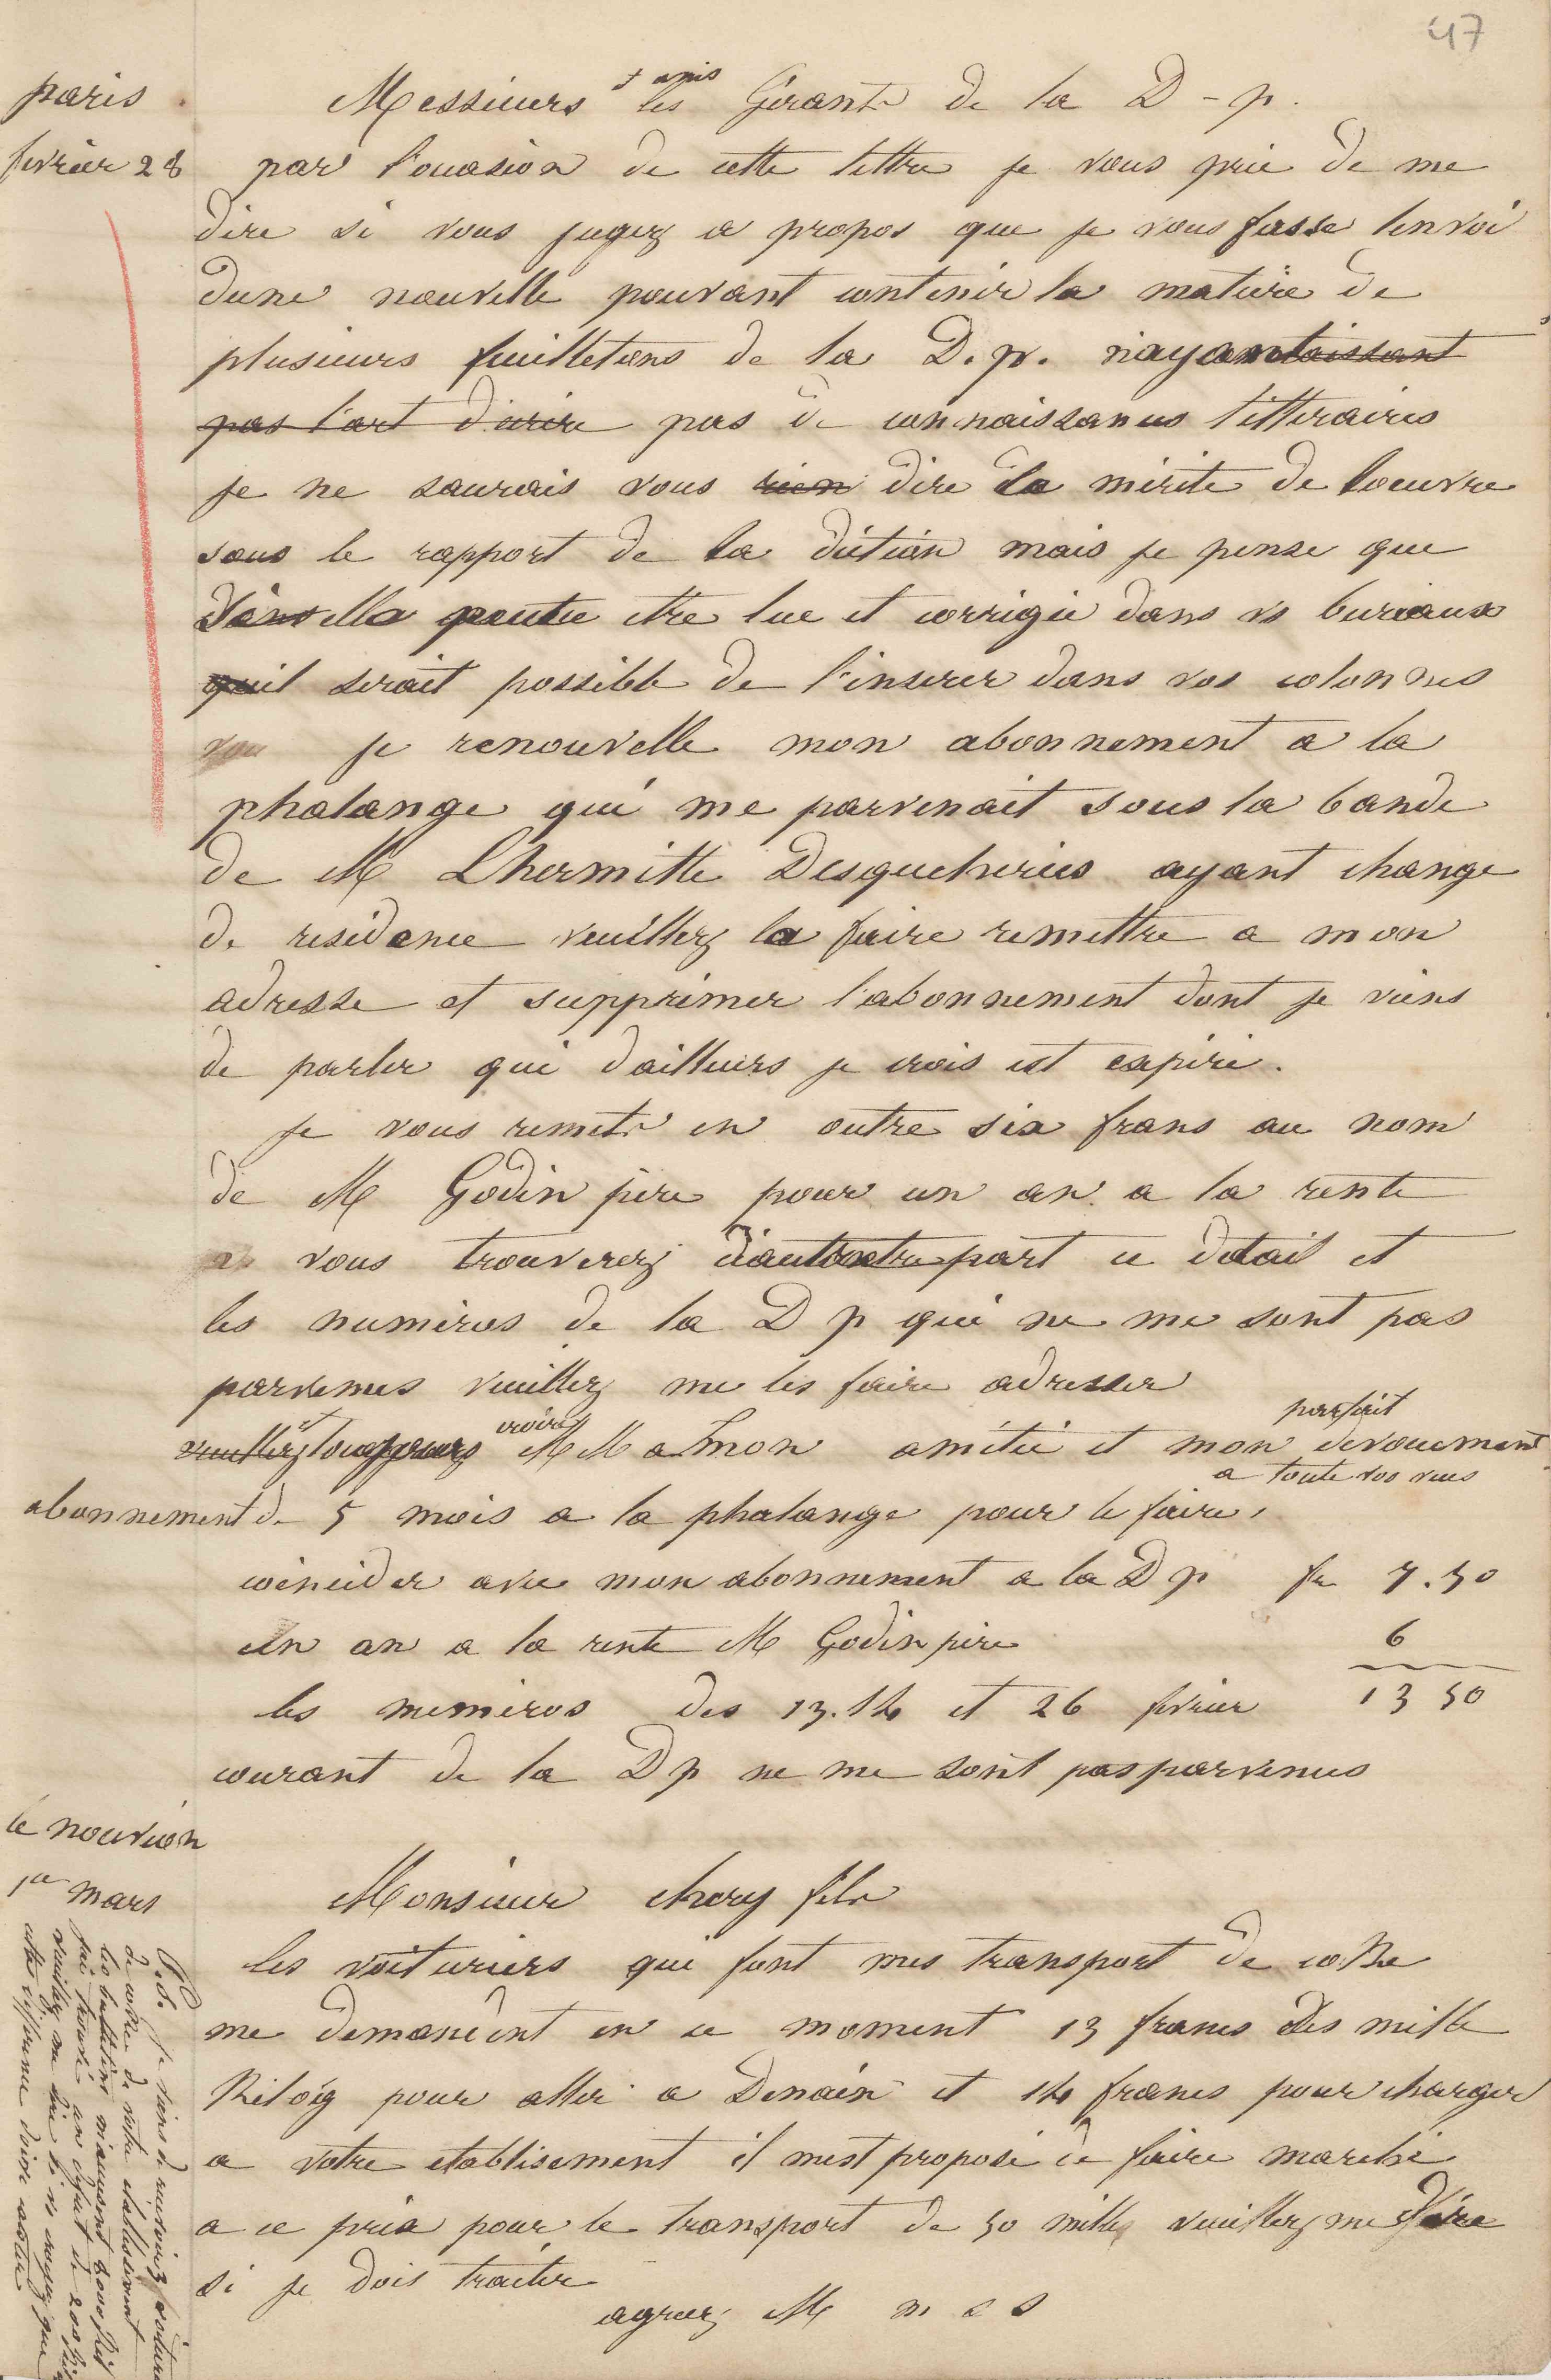 47
paris
fevrier 28
Messieurs et amis les Gérants de la D - p.
par l'ouasion de cette lettre je vous prie de me
dire si vous jugez a propos que je vous fasse lenvoi
dune nouvelle pouvant contenir la matière de
plusieurs feuilletons de la D. p. n'ayant
pas l'art d'ecrire pas de connaissances litteraires
je ne saurais vous rien dire le mérite de loeuvre
sous le rapport de la diction mais je pense que
etre lue et corrigée dans vs bureaux
quil serait possible de l'inserer dans vos colonnes
je renouvelle mon abonnement a la
phalange qui me parvenait sous la bande
de M Lhermitte Desqueheries ayant change
de residence veuillez la faire remettre a mon
adresse et supprimer l'abonnement dont je viens
de parler qui dailleurs je crois est expiré.
je vous remets en outre six frans au nom
de M Godin père pour un an a la rente
vous trouverez part ce detail et
les numéros de la D p qui ne me sont pas
parvenus veuillez me les faire adresser
veuillez toujours croire M M a mon amitié et mon parfait devouement
a toute vos vues
abonnement de 5 mois a la phalange pour le faire
coincider avec mon abonnement a la D p fr 7.50
un an a la rente M Godin père 6
les numéros des 13. 14 et 26 fevrier 13 50
courant de la D p ne me sont pas parvenus
le nouvion
1er mars
Monsieur chery fils
les voituriers qui font mes transport de coke
me demandent en ce moment 13 francs des mille
Kilog pour aller a Denain et 14 francs pour charger
a votre etablisement il mest proposé de faire marché
a ce prix pour le transport de 50 mille veuillez me dire
si je dois traiter
agreez M m s s
P.S. je viens de recevoir 3 voitures
de coke de votre etablissement
les bulletins m'accusent 2000 Kil
j'ai trouvé un deficit de 200 Kil
veuillez me dire si vs croyez que
cette difference doive exister